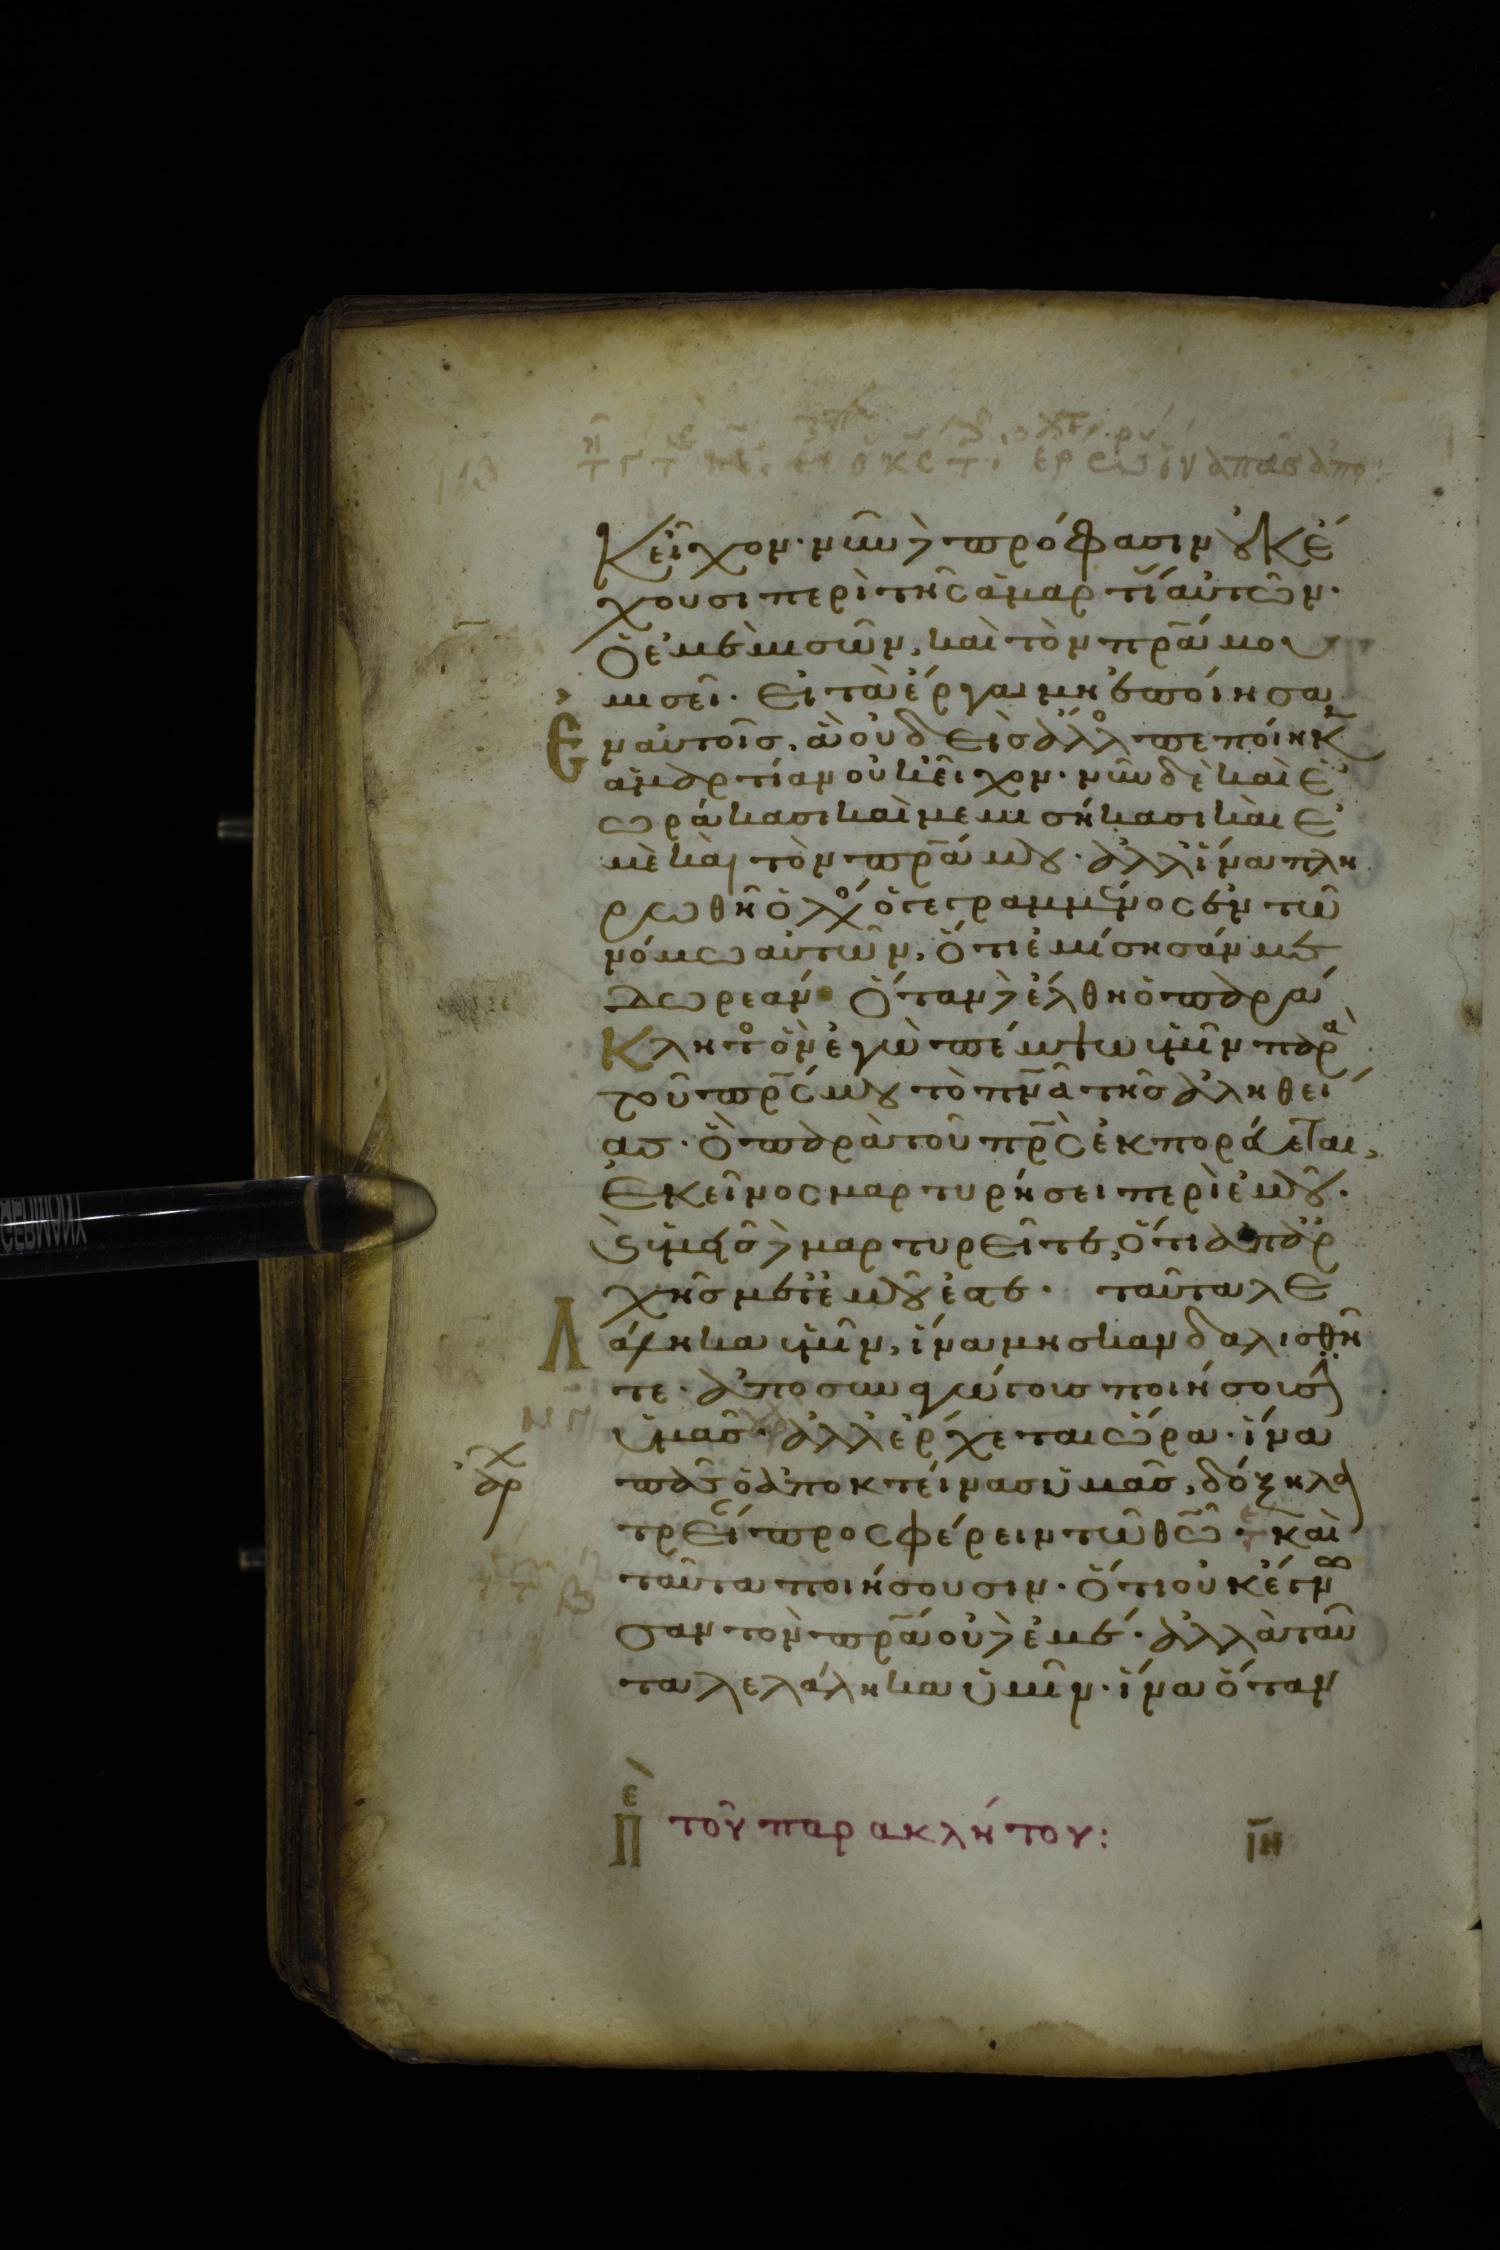 κεῖχον· νῦν δὲ πρόφασιν οὐκ ἔ
χουσι περὶ τῆς ἁμαρτί αὐτῶν·
Ὁ ἐμὲ μισῶν, καὶ τὸν πρ̅α μου
μισεῖ· Εἰ τὰ ἔργα μὴ ἐποίησα
ἐν αὐτοῖς, ἃ οὐδεὶς ἄλλο πεποίηκ
ἁμαρτίαν οὐκ εἶχον· νῦν δὲ καὶ ἑ
ωράκασι καὶ μεμισήκασι καὶ ἐ
μὲ καὶ τὸν πρ̅α μου· ἀλλ ἵνα πλη
ρωθῆ ὁ λόγο ὁ γεγραμμένος ἐν τῶ
νόμω αὐτῶν, ὅτι ἐμίσησάν με
δωρεάν· Ὅταν δὲ ἔλθη ὁ παρά
κλητο ὃν ἐγὼ πέμψω ὑμῖν παρὰ
τοῦ πρ̅ς μου τὸ πν̅α τῆς ἀληθεί
ας· ὃ παρὰ τοῦ πρ̅ς ἐκπορεύεται,
ἐκεῖνος μαρτυρήσει περὶ ἐμοῦ·
καὶ ὑμεῖς δὲ μαρτυρεῖτε, ὅτι ἀπαρ
χῆς μετ ἐμοῦ ἐστε· ταῦτα λε
λάληκα ὑμῖν, ἵνα μὴ σκανδαλισθῆ
τε· ἀποσυναγώγους ποιήσουσιν
ὑμᾶς· ἀλλ ἔρχεται ὥρα· ἵνα
πᾶς ὁ ἀποκτείνας ὑμᾶς, δόξη λα
τρείαν προσφέρειν τῶ θ̅ω· καὶ
ταῦτα ποιήσουσιν· ὅτι οὐκ ἔγνω
σαν τὸν πρ̅α οὐδὲ ἐμέ· ἀλλὰ ταῦ
τα λελάληκα ὑμῖν· ἵνα ὅταν
πε τοῦ παρακλήτου:
ιη